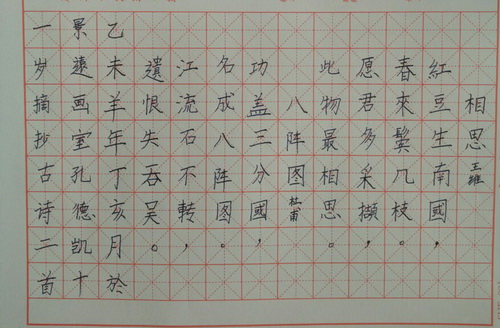 相思 王維
紅豆生南國，
春來發几枝。
愿君多采擷，
此物最相思。
八阵图 杜甫
功盖三分國，
名成八阵图。
江流石不轉，
遺恨失吞吴。
乙未羊年丁亥月於
景遠画室孔德凯十
一岁摘抄古诗二首